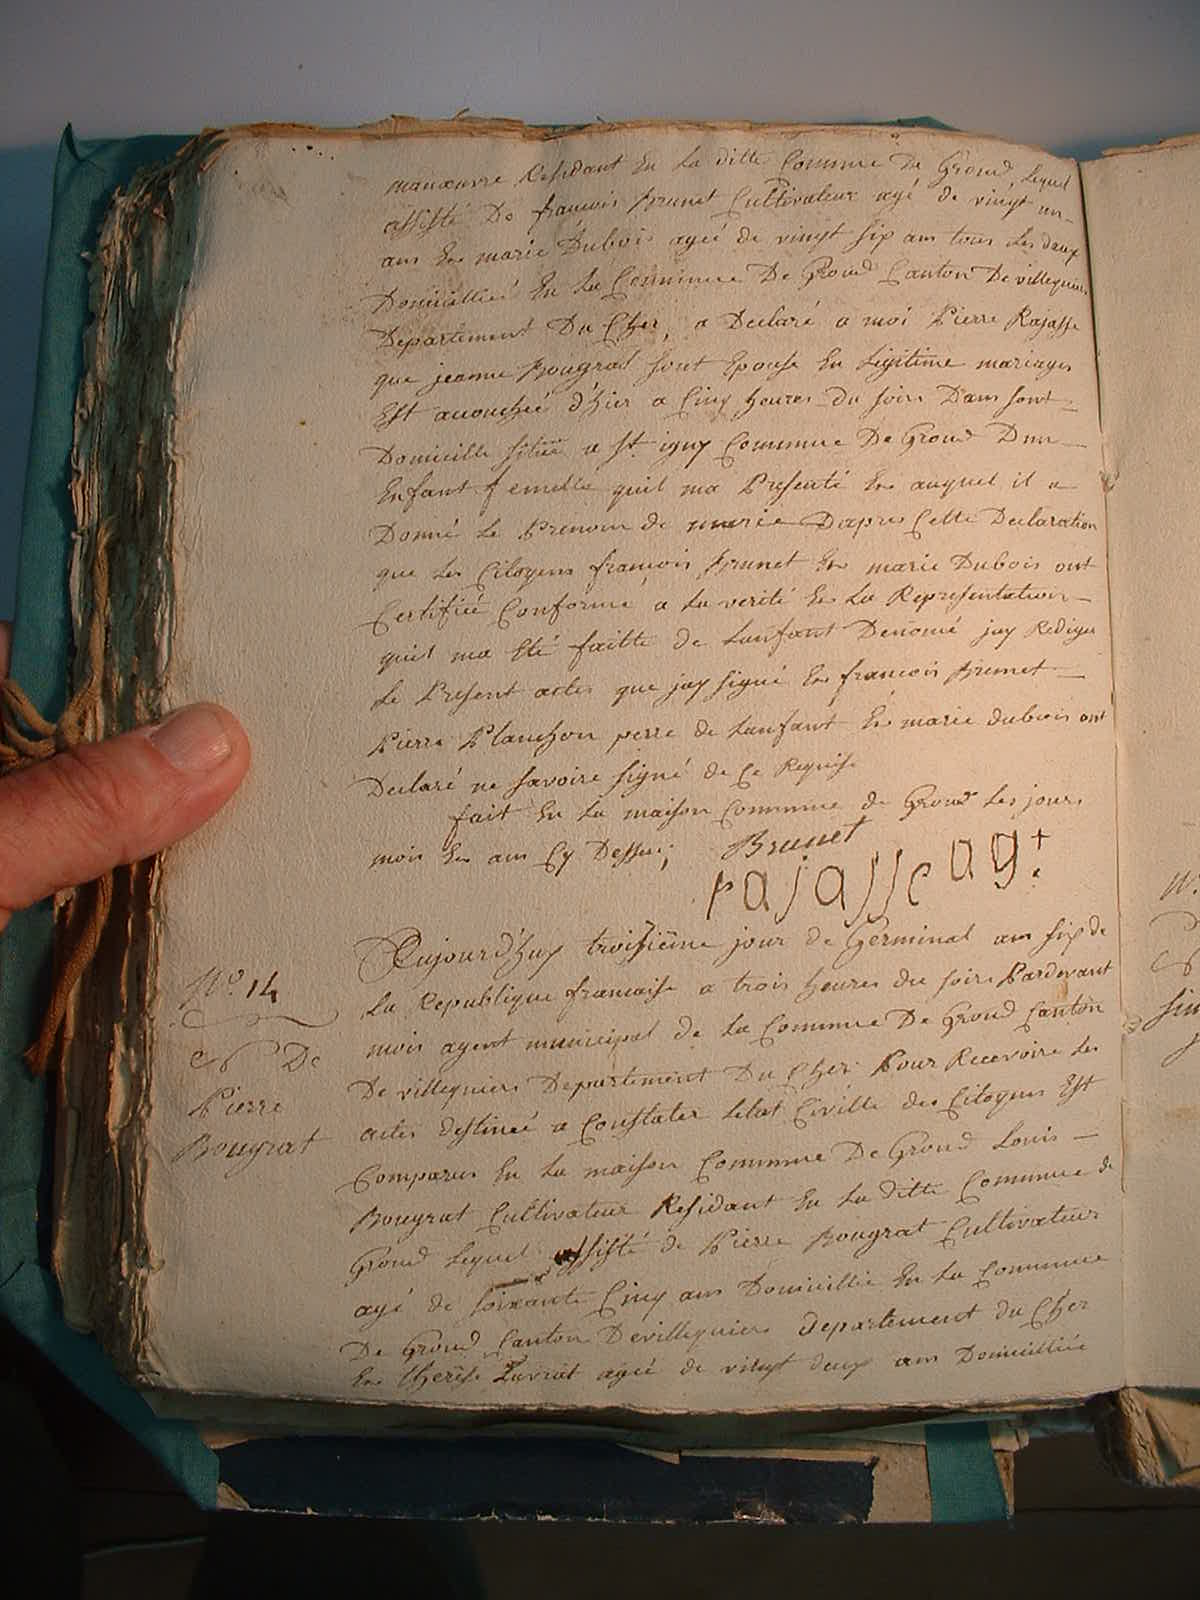 manœuvre Residant En La ditte Commune De Grond, Lequel
assisté De francois Brunet Cultivateur agé de vingt un
ans En marie Dubois ageé de vingt six ans tous Les deux
Domicilliés En La Commune De Grond Canton De villequiers
Departement Du Cher, a Declaré a moi Pierre Rajasse
que jeanne Bougrat sont Epouse En Legitime mariages
Est acouchéé d'hier a Cinq heures du soirs Dans sont
Domicille situé a St. igny Commune De Grond Dun
Enfant femelle quil ma Presenté En auquel il a
Donné Le Prenom de marie Dapres Cette Declaration
que Les Citoyens francois Brunet En marie Dubois ont
Certifiéé Conforme a La verité En La Representation
quil ma Eté faitte de Lanfant Denomé jay Rediger
Le Present actes que jay signé En francois Brunet
Pierre Planchon perre de Lanfant En marie dubois ont
Declaré ne savoire signé de Ce Requise
fait En La maison Commune de Grond Les jours
mois En ans Cy Dessus;
Brunet
rajasse agt
No. 14
N De
Pierre
Bougrat
Aujourd'huy troisiéme jour de Germinal an six de
La Republique francaise a trois heures du soirs Pardevant
mois agent municipal de La Commune De Grond Canton
De villequiers Departement Du Cher Pour Recevoire Les
actes destinéé a Constater Letat Civille des Citoyens Est
Comparus En La maison Commune De Grond Louis
Bougrat Cultivateur Residant En La ditte Commune de
Grond Lequel assisté de Pierre Bougrat Cultivateur
agé de soixante Cinq ans Domicillié En La Commune
De Grond Canton De villequiers departement du Cher
En therèse ageé de vingt deux ans Domicilliéé